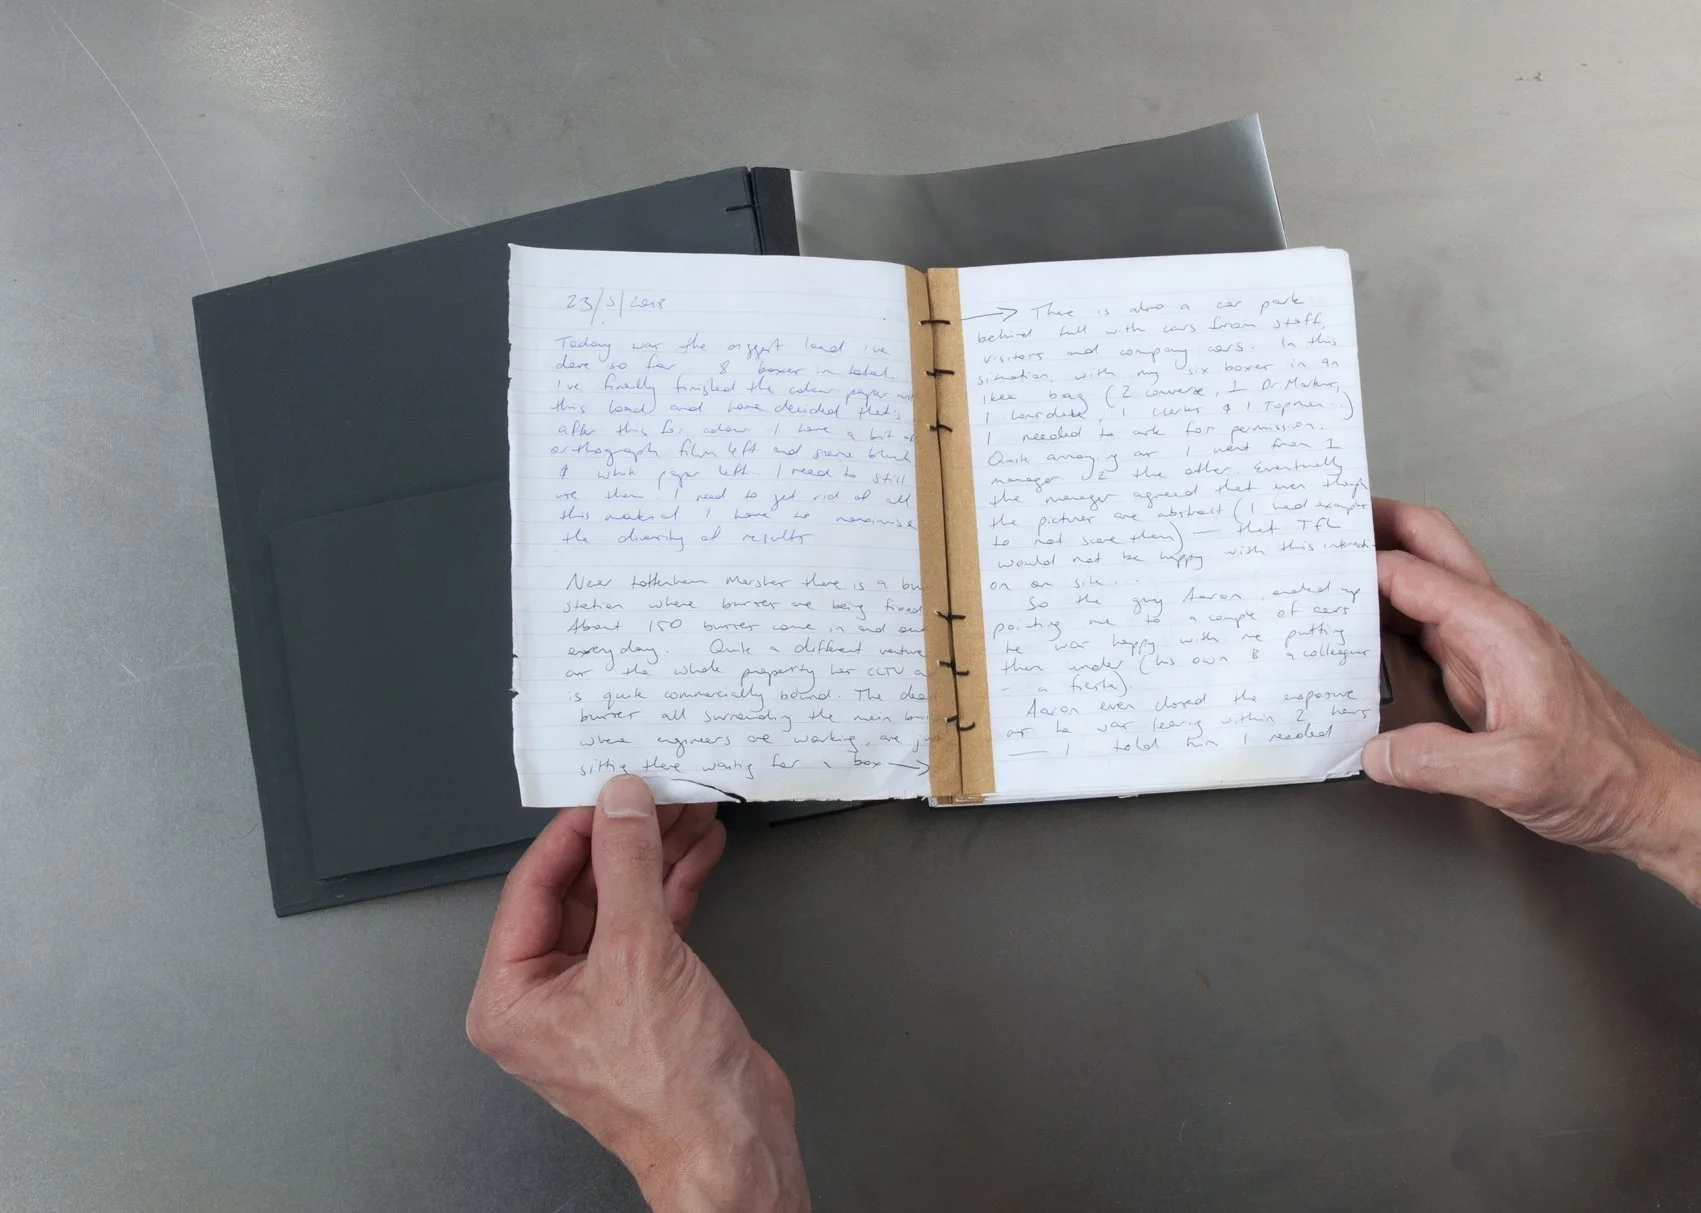 23/5/2018
Today was the biggest load i've
done so far. 8 boxes in total
i've finally finished the colour paper with
this load and have decided that's
after this for colour. I have a bit of
orthograph film left and some black
& white paper left. I need to still
use them. I need to get rid of all
this material I have to maximise
the diversity of results
Near tottenham Marshes there is a bus
station where busses are being fixed
About 150 busses come in and out
every day. Quite a different venture
as the whole property has CCTV
is quite commercially bound. The dead
busses all surrounding the main
where engineers are working, are just
sitting there waiting for a box →
→ There is also a car park
behind full with cars from staff,
visitors and company cars. In this
situation, with my six boxes in an
ikea bag (2 converse, 1 Dr Martens,
1 , 1 Clarks & 1 Topman...)
I needed to ask for permission.
Quite annoying as I went from 1
manager 2 the other. Eventually
the manager agreed that even though
the pictures are abstract (I had examples
to not scare them) — that TFL
would not be happy with this
on on site...
So the guy Aaron, ended up
pointing me to a couple of cars
he was happy with me putting
them under (his own & a colleagues
- a fiesta)
Aaron even closed the exposure
as he was leaving within 2 hours
— I told him I needed